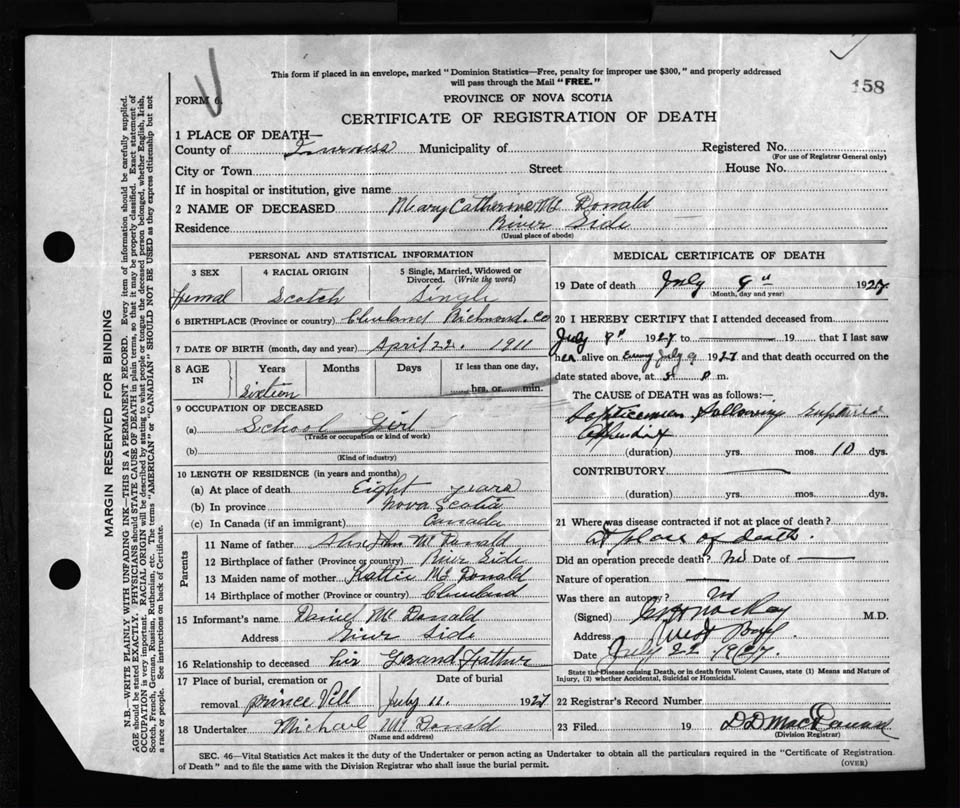 This form if placed in an envelope, marked "Dominion Statistics—Free, penalty for improper use $300," and properly addressed
will pass through the Mail "FREE."
158
FORM 6.
PROVINCE OF NOVA SCOTIA
CERTIFICATE OF REGISTRATION OF DEATH
1 PLACE OF DEATH—
County of Inverness Municipality of Registered No.
(For use of Registrar General only)
City or Town Street House No.
If in hospital or institution, give name
2 NAME OF DECEASED Mary Catherine Mc Donald
Residence River Side
(Usual place of abode)
PERSONAL AND STATISTICAL INFORMATION
3 SEX 4 RACIAL ORIGIN 5 Single, Married, Widowed or Divorced. (Write the word)
Femal Scotch Single
6 BIRTHPLACE (Province or country) Cleveland Richmond Co
7 DATE OF BIRTH (month, day and year) April 22. 1911
8 AGE IN Years Months Days If less than one day,
Sixteen hrs. or min.
9 OCCUPATION OF DECEASED
(a) School Girl
(Trade or occupation or kind of work)
(b)
(Kind of industry)
10 LENGTH OF RESIDENCE (in years and months)
(a) At place of death Eight years
(b) In province Nova Scotia
(c) In Canada (if an immigrant) Canada
Parents
11 Name of father John Mc Donald
12 Birthplace of father (Province or country) River Side
13 Maiden name of mother Kattie Mc Donald
14 Birthplace of mother (Province or country) Cleveland
15 Informant's name Daniel Mc Donald
Address River Side
16 Relationship to deceased his Grand Father
17 Place of burial, cremation or Date of burial
removal Prince Vill July 11. 1927
18 Undertaker Michael Mc Donald
(Name and address)
MEDICAL CERTIFICATE OF DEATH
19 Date of death July 9th 1927
(Month, day and year)
20 I HEREBY CERTIFY that I attended deceased from
July 9th 1927 to 19 that I last saw
her alive on July 9 1927 and that death occurred on
the date stated above, at p m.
The CAUSE of DEATH was as follows:—
Septicemia following ruptured
Appendix
(duration) yrs. mos. 10 dys.
CONTRIBUTORY
(duration) yrs. mos. dys.
21 Where was disease contracted if not at place of death?
at place of death.
Did an operation precede death? no Date of
Nature of operation
Was there an autopsy? no
(Signed) MacKay M.D.
Address West Bay
Date July 22 1927.
State the Disease causing Death, or in death from Violent Causes, state (1) Means and Nature of
Injury, (2) whether Accidental, Suicidal or Homicidal.
22 Registrar's Record Number
23 Filed 19 D D MacDonald
(Division Registrar)
SEC. 46—Vital Statistics Act makes it the duty of the Undertaker or person acting as Undertaker to obtain all the particulars required in the "Certificate of Registration
of Death" and to file the same with the Division Registrar who shall issue the burial permit.
(OVER)
MARGIN RESERVED FOR BINDING
N.B.—WRITE PLAINLY WITH UNFADING INK—THIS IS A PERMANENT RECORD. Every item of information should be carefully supplied.
AGE should be stated EXACTLY. PHYSICIANS should STATE CAUSE OF DEATH in plain terms, so that it may be properly classified. Exact statement of
OCCUPATION is very important. RACIAL ORIGIN will be described by stating to what people or tongue the deceased person belonged, whether English, Irish,
Scotch, French, German, Russian, Ruthenian, etc. The terms "AMERICAN" or "CANADIAN" SHOULD NOT BE USED as they express citizenship but not
a race or people. See instructions on back of Certificate.